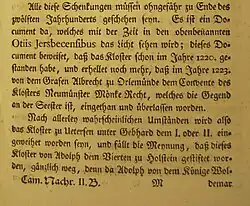 Alle diese Schenkungen müssen ohngefähr zu Ende des
zwölften Jahrhunderts geschehen seyn. Es ist ein Do-
cument da, welches mit der Zeit in den obenbenannten
Otiis Jersbecensibus das Licht sehen wird; dieses Do-
cument beweiset, daß das Kloster schon im Jahre 1220. ge-
standen habe, und erhellet noch mehr, daß im Jahre 1223.
von dem Grafen Albrecht zu Orlemünde dem Convente des
Klosters Neumünster Mönke Recht, welches die Gegend
an der Sester ist, eingethan und überlassen worden.
Nach allerley wahrscheinlichen Umständen wird also
das Kloster zu Uetersen unter Gebhard dem I. oder II. ein-
geweihet worden seyn, und fällt die Meynung, daß dieses
Kloster von Adolph dem Vierten zu Holstein gestiftet wor-
den, gänzlich weg, denn da Adolph von dem Könige Wol-
Cam. Nachr. II. B. M demar